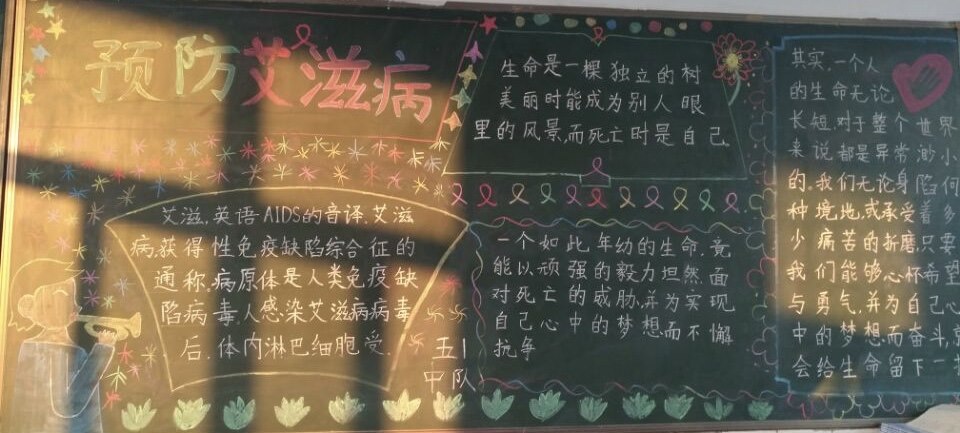 预防艾滋病
艾滋,英语AIDS的音译,艾滋
病,获得性免疫缺陷综合征的
通称,病原体是人类免疫缺
陷病毒,人感染艾滋病病毒
后,体内淋巴细胞受
五1
中队
生命是一棵独立的树
美丽时能成为别人眼
里的风景,而死亡时是自己,
一个如此年幼的生命,竟
能以顽强的毅力坦然面
对死亡的威胁,并为实现
自己心中的梦想而不懈
抗争
其实,一个人
的生命无论
长短,对于整个世界
来说,都是异常渺小
的,我们无论身陷何
种境地,或承受着多
少痛苦的折磨,只要
我们能够心怀希望
与勇气,并为自己心
中的梦想而奋斗,就
会给生命留下一